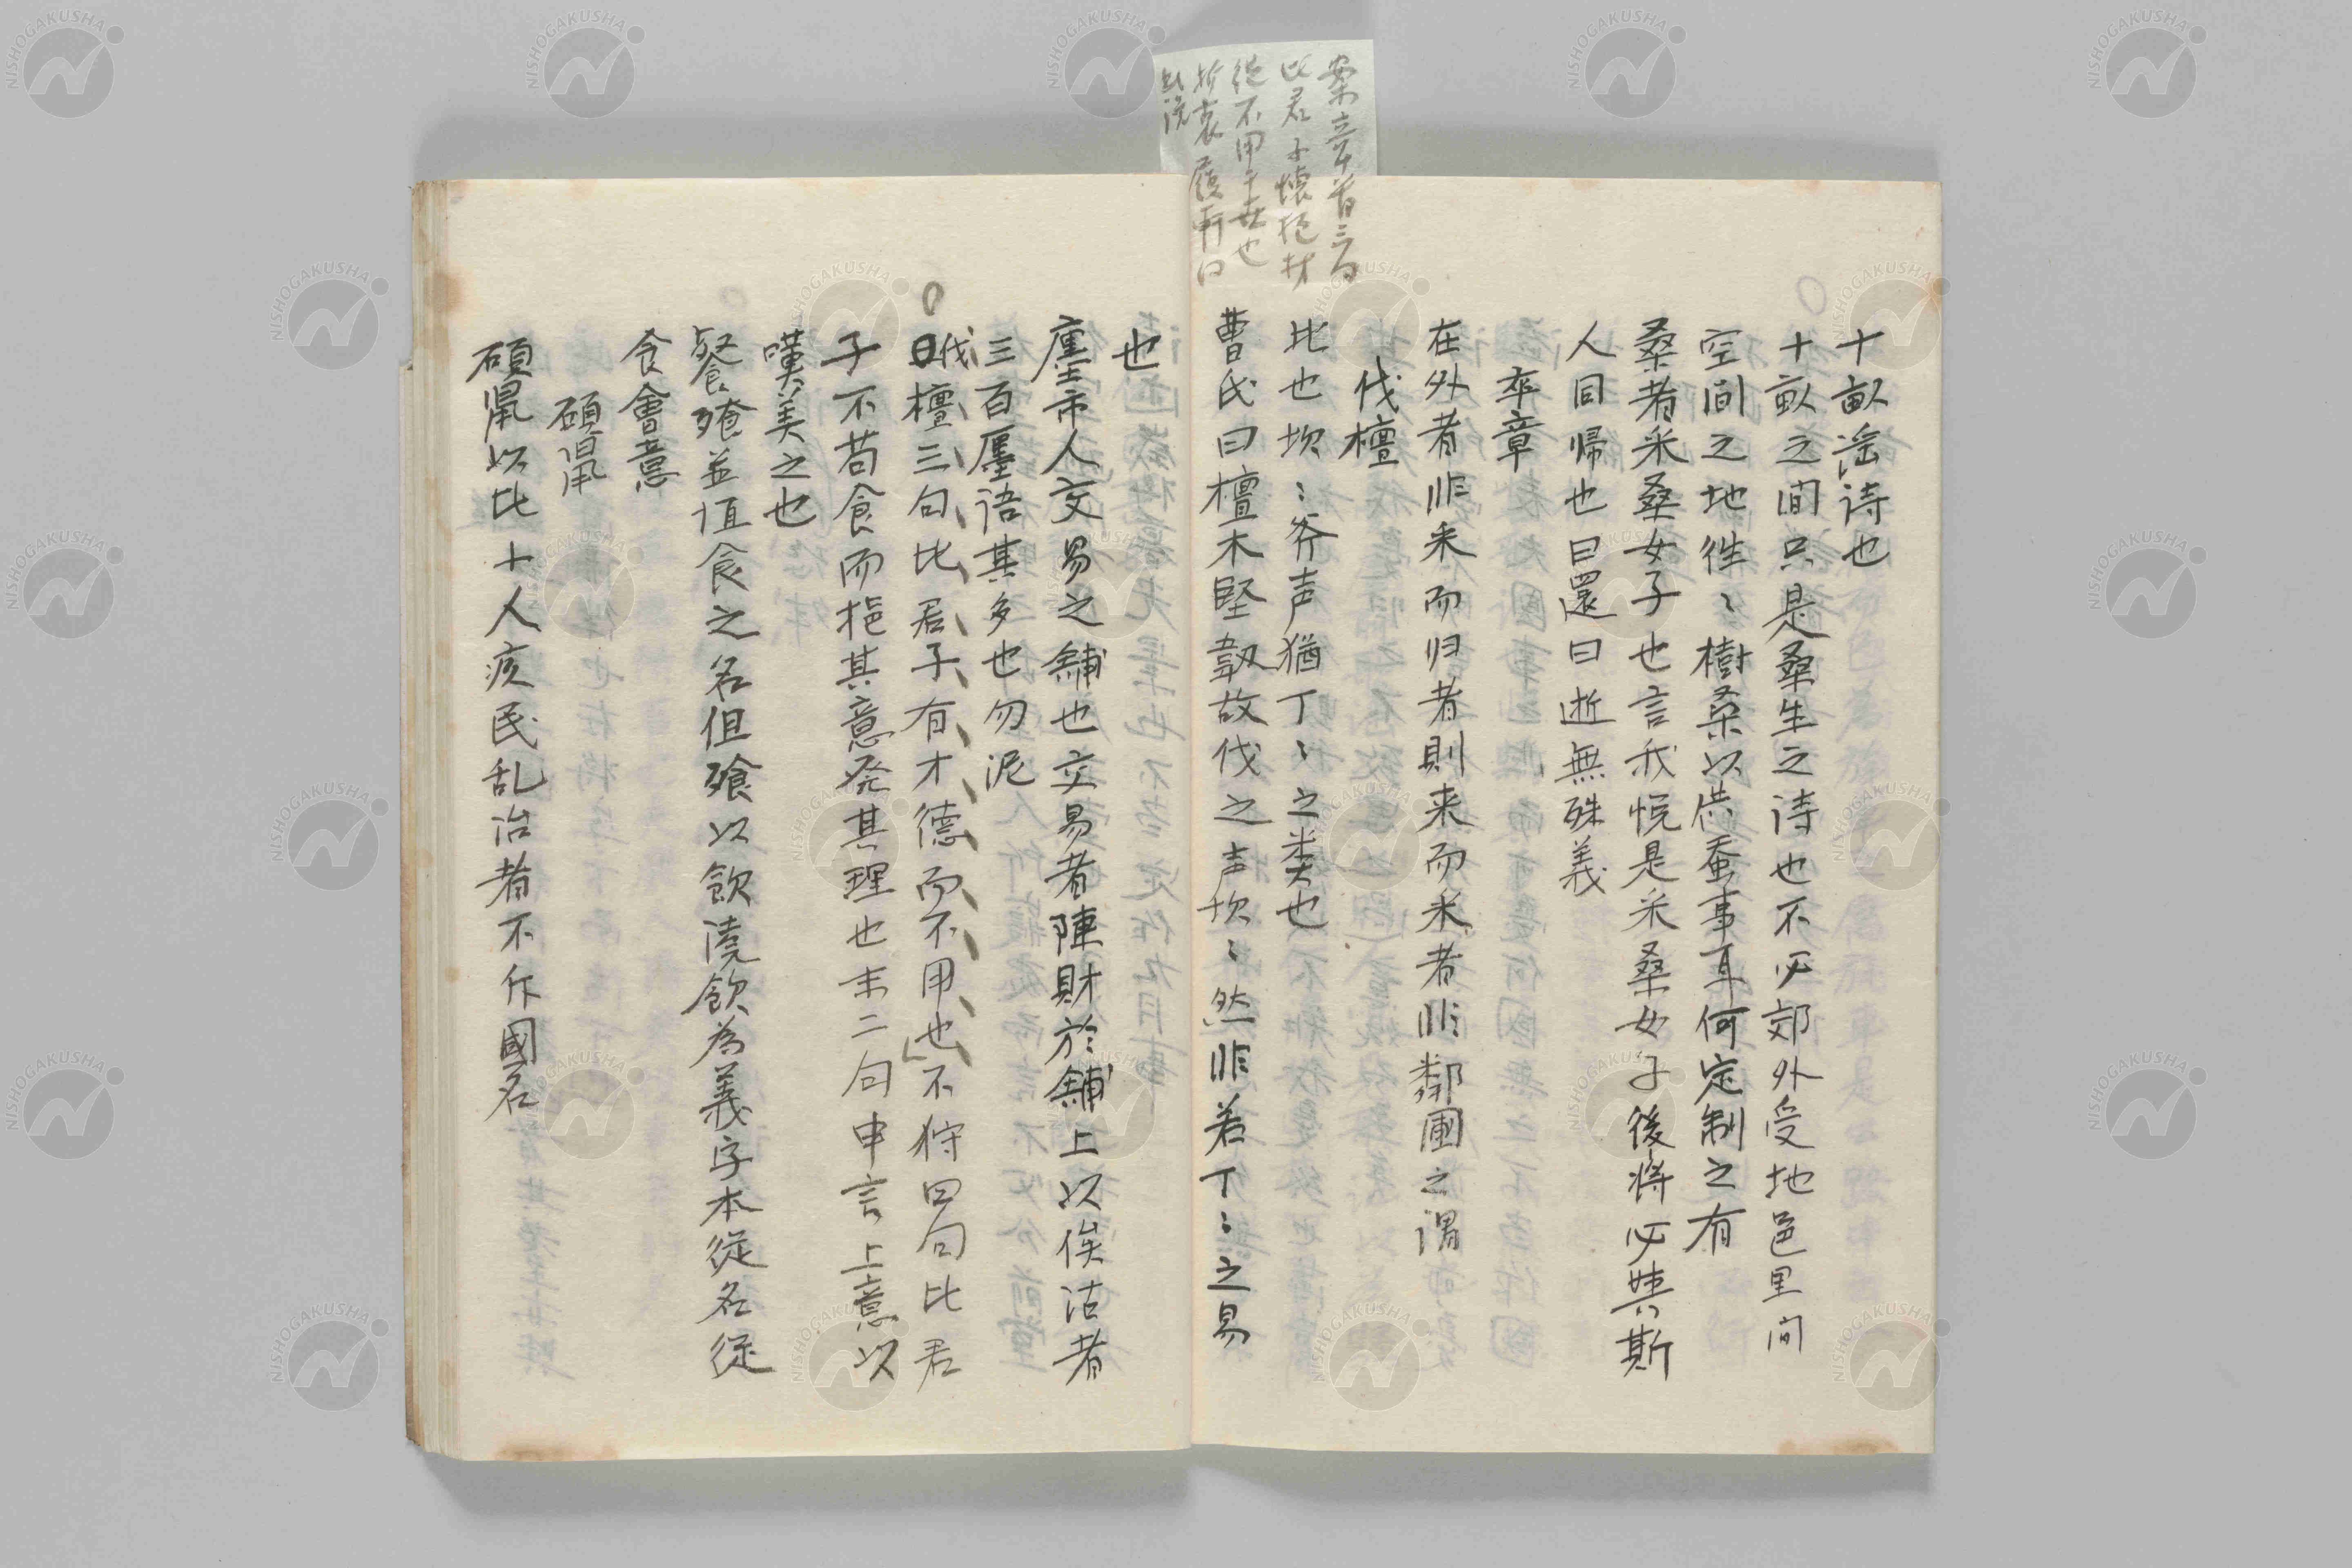 十畝淫詩也
十畝之間只是桑生之詩也不必郊外受地邑里间
空间之地徃〻樹桒以供蚕事耳何定制之有
桑者采桑女子也言我悦是采桑女子後將必與斯
人同帰也曰還曰逝無殊義
卒章
在外者非来而归者則来而采者非鄰圃之謂
伐檀
比也坎〻斧声猶丁〻之类也
曹氏曰檀木堅韌故伐之声坎〻然非若丁〻之易
案章首三句
比君子懐抱材
徳不用于世也
折衷履軒曰
也
廛市人交易之舖也交易者陳財於舖上以俟沽者
三百廛语其多也勿泥
伐檀三句比君子有才德而不用也不狩四句比君
子不苟食而抱其意発其理也末二句申言上意以
嘆美之也
餐飱並恒食之名但飱以飲澆飲為義字本従名従
食會意
碩鼠
碩鼠以比小人疾民乱治者不斥國名
NISHOGAKUSHA